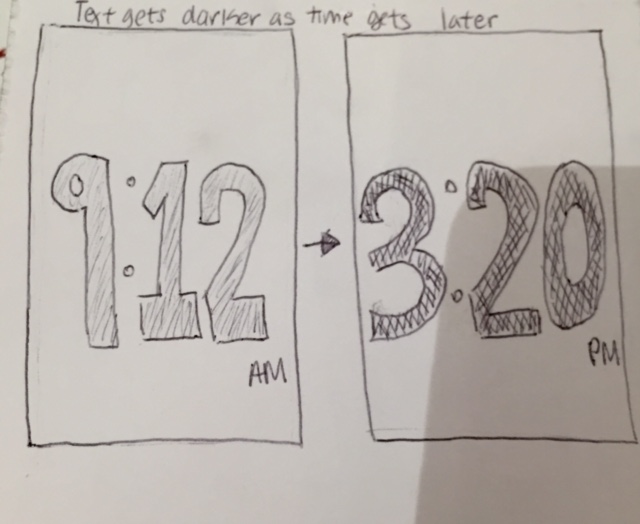 Text gets darker as time gets later
9:12
AM
3:20
PM